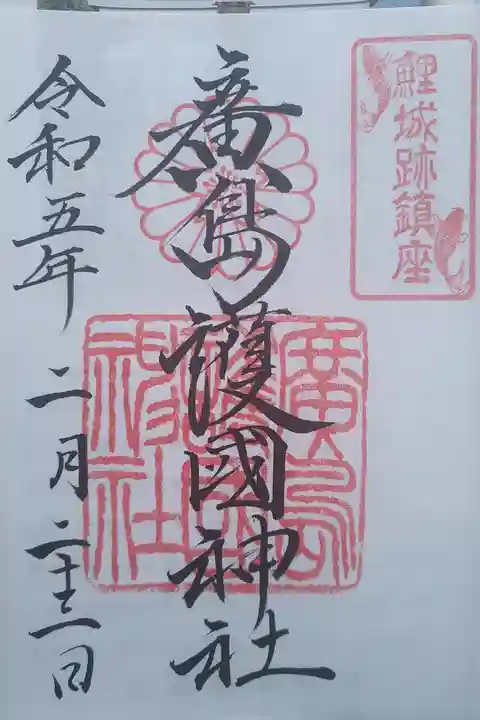 鯉城跡鎮座
廣島護國神社
廣島護國神社
令和五年二月二十三日